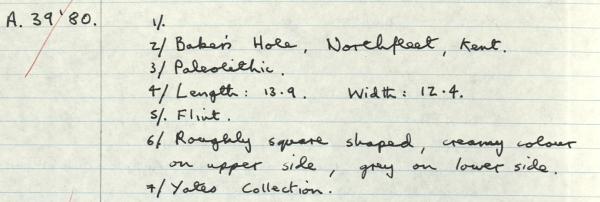 A. 39'80.
1/.
2/ Baker's Hole, Northfleet, Kent.
3/ Paleolithic.
4/ Length: 13.9. Width: 12.4.
5/. Flint.
6/. Roughly square shaped, creamy colour
on upper side, grey on lower side.
7/ Yates Collection.